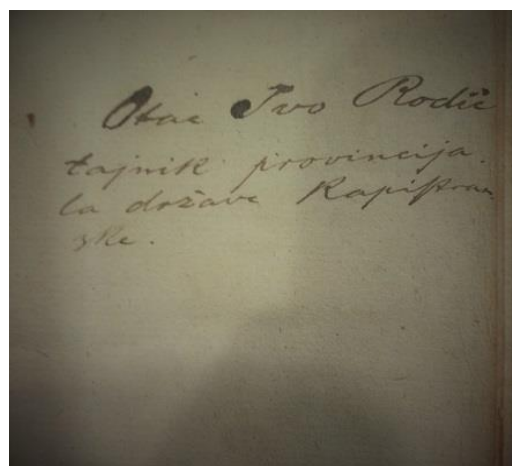 Otac Ivo Rodić
tajnik provincija.
la države Kapistran
ske.